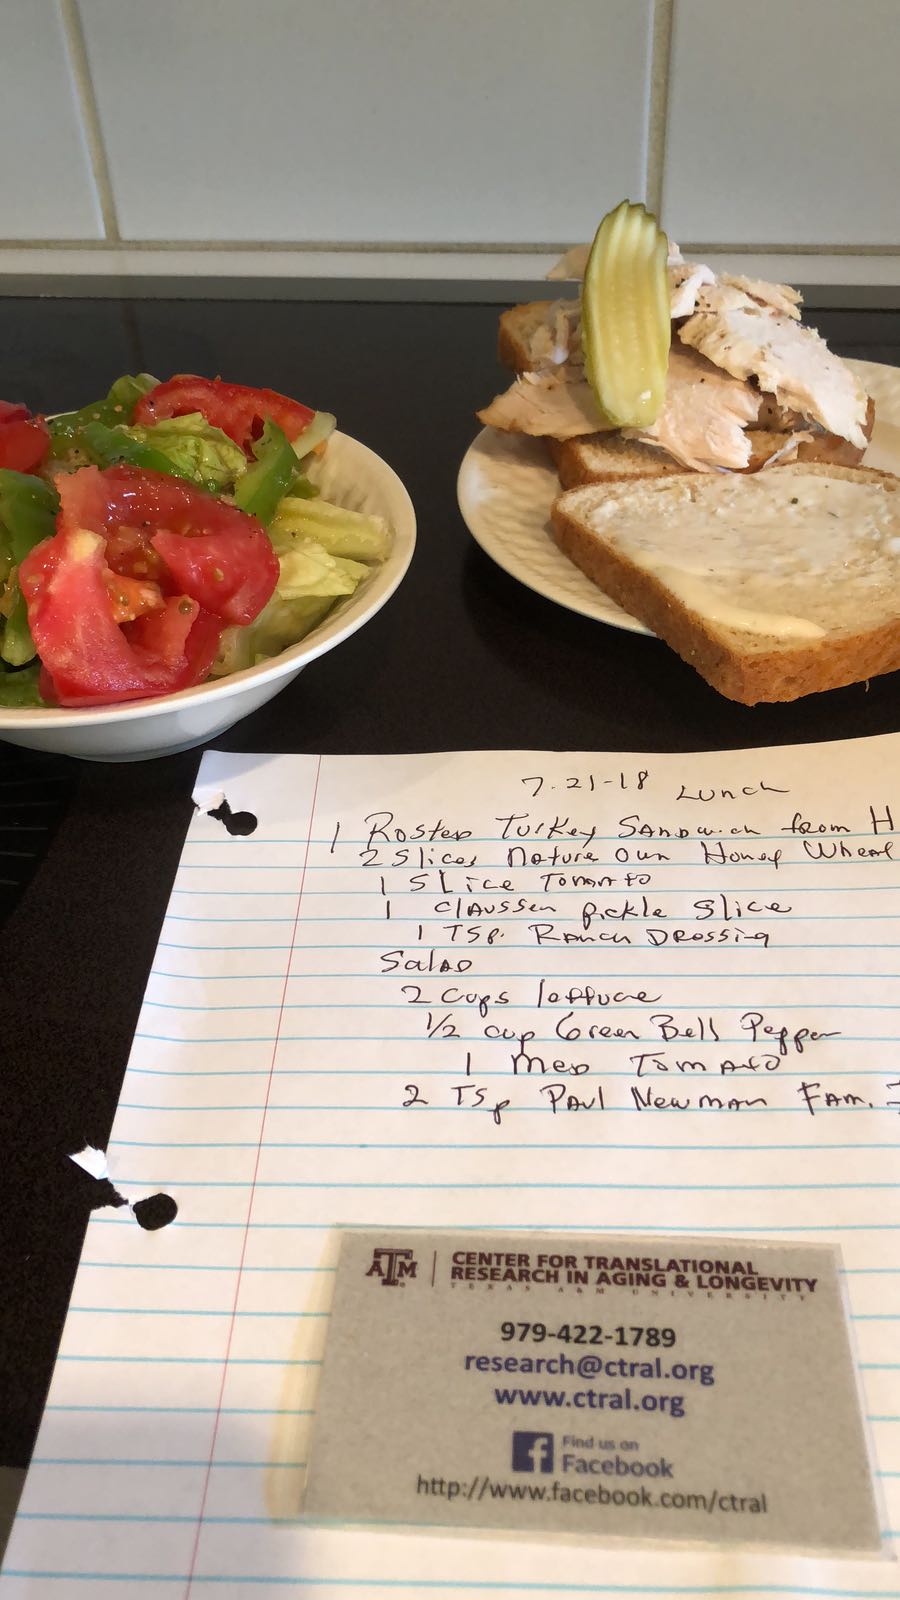 7.21-18 Lunch
1 Rosted Turkey Sandwich from H
2 Slices Nature Own Honey Wheat
1 Slice Tomato
1 Claussen pickle slice
1 Tsp. Ranch Dressing
Salad
2 cups lettuce
1/2 cup Green Bell Pepper
1 Med Tomato
2 Tsp Paul Newman Fam.
ATM CENTER FOR TRANSLATIONAL
RESEARCH IN AGING & LONGEVITY
TEXAS A&M UNIVERSITY
979-422-1789
research@ctral.org
www.ctral.org
f Find us on
Facebook
http://www.facebook.com/ctral